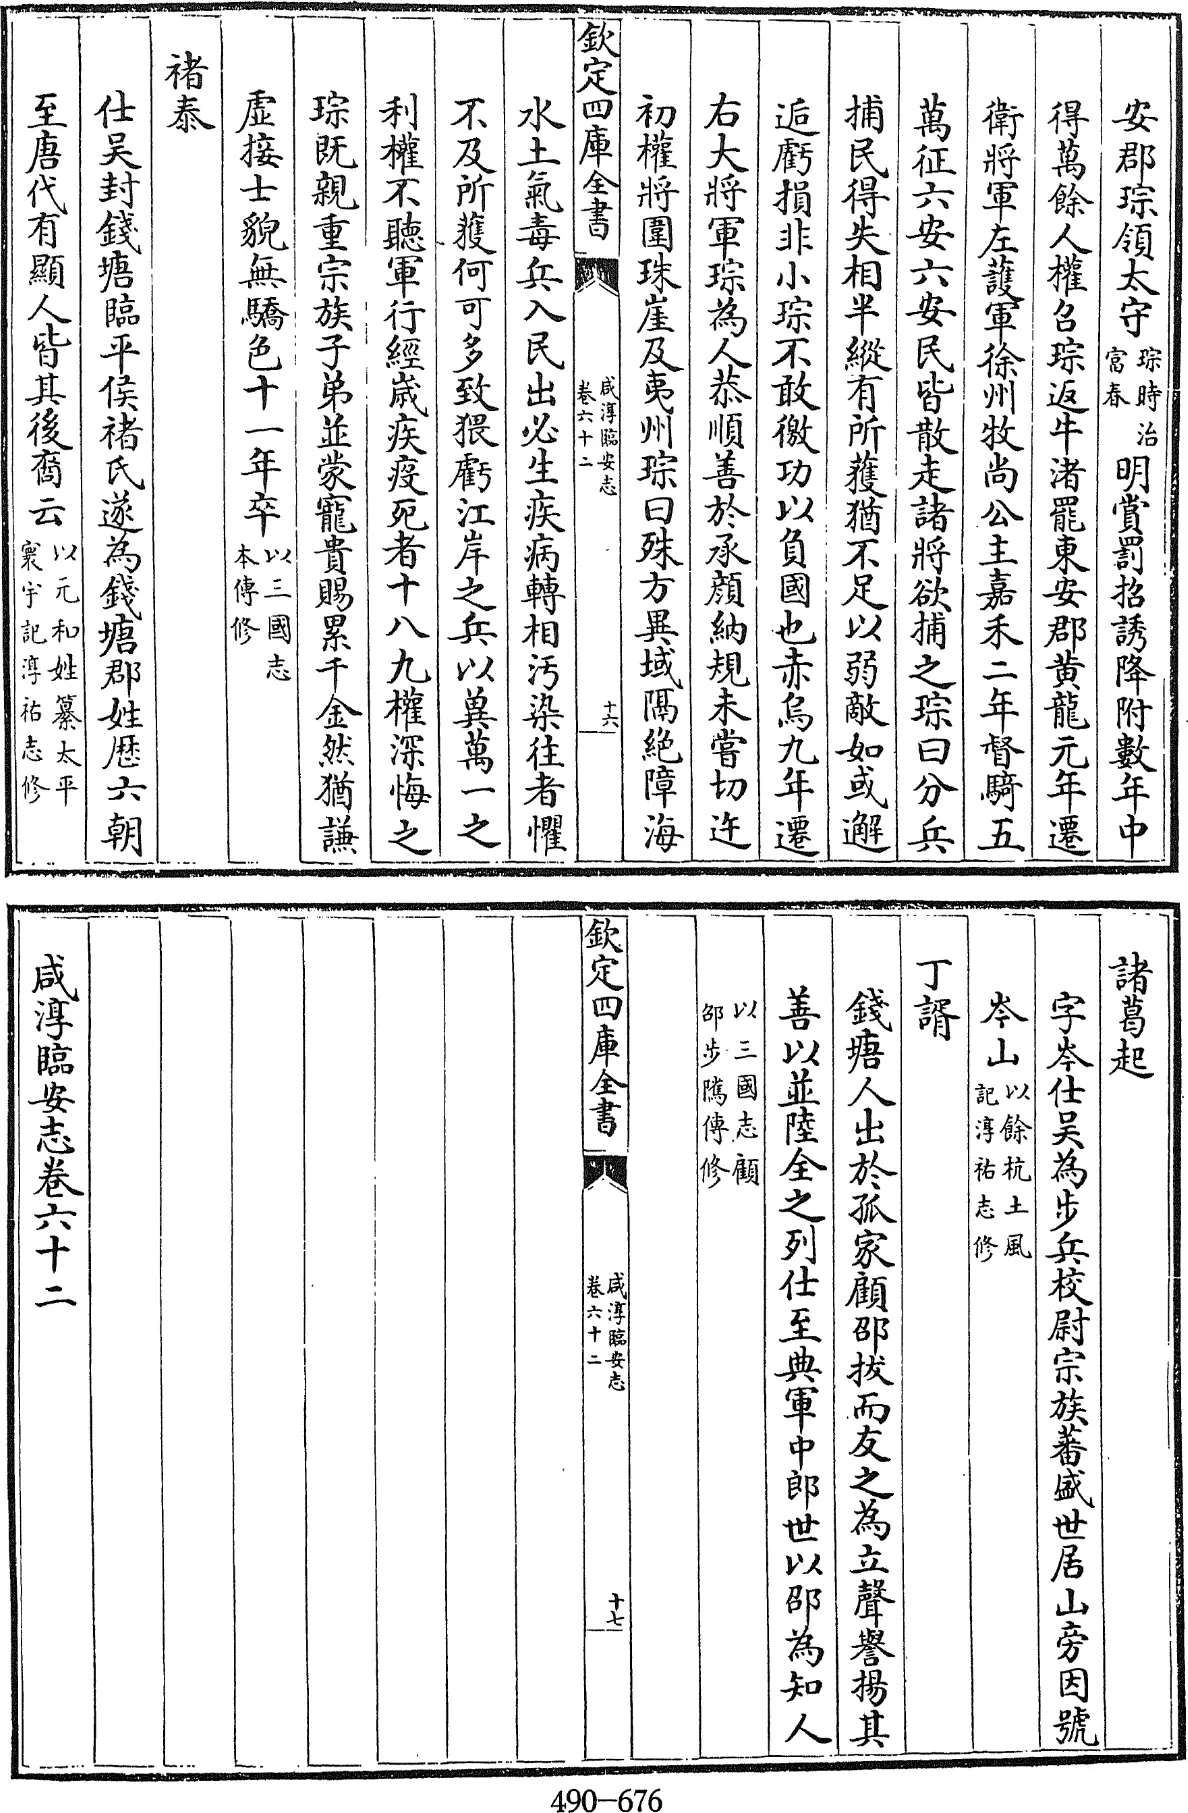 安郡琮領太守琮時治富春明賞罰招誘降附數年中
得萬餘人權召琮返牛渚罷東安郡黄龍元年遷
衛將軍左護軍徐州牧尚公主嘉禾二年督騎五
萬征六安六安民皆散走諸將欲捕之琮曰分兵
捕民得失相半縱有所獲猶不足以弱敵如或邂
逅虧損非小琮不敢徼功以負國也赤烏九年遷
右大將軍琮為人恭順善於承顔納規未嘗切迕
初權將圍珠崖及夷州琮曰殊方異域隔絶障海
欽定四庫全書
咸淳臨安志
卷六十二
十六
水土氣毒兵入民出必生疾病轉相汚染往者懼
不及所獲何可多致猥虧江岸之兵以冀萬一之
利權不聽軍行經歳疾疫死者十八九權深悔之
琮既親重宗族子弟並蒙寵貴賜累千金然猶謙
虛接士貌無驕色十一年卒以三國志本傳修
褚泰
仕吴封錢塘臨平侯褚氏遂為錢塘郡姓歴六朝
至唐代有顯人皆其後裔云以元和姓纂太平寰宇記淳祐志修
諸葛起
字岑仕吴為步兵校尉宗族蕃盛世居山旁因號
岑山以餘杭土風記淳祐志修
丁諝
錢塘人出於孤家顧邵拔而友之為立聲譽揚其
善以並陸全之列仕至典軍中郎世以邵為知人
以三國志顧邵步隲傳修
欽定四庫全書
咸淳臨安志
卷六十二
十七
咸淳臨安志卷六十二
490-676